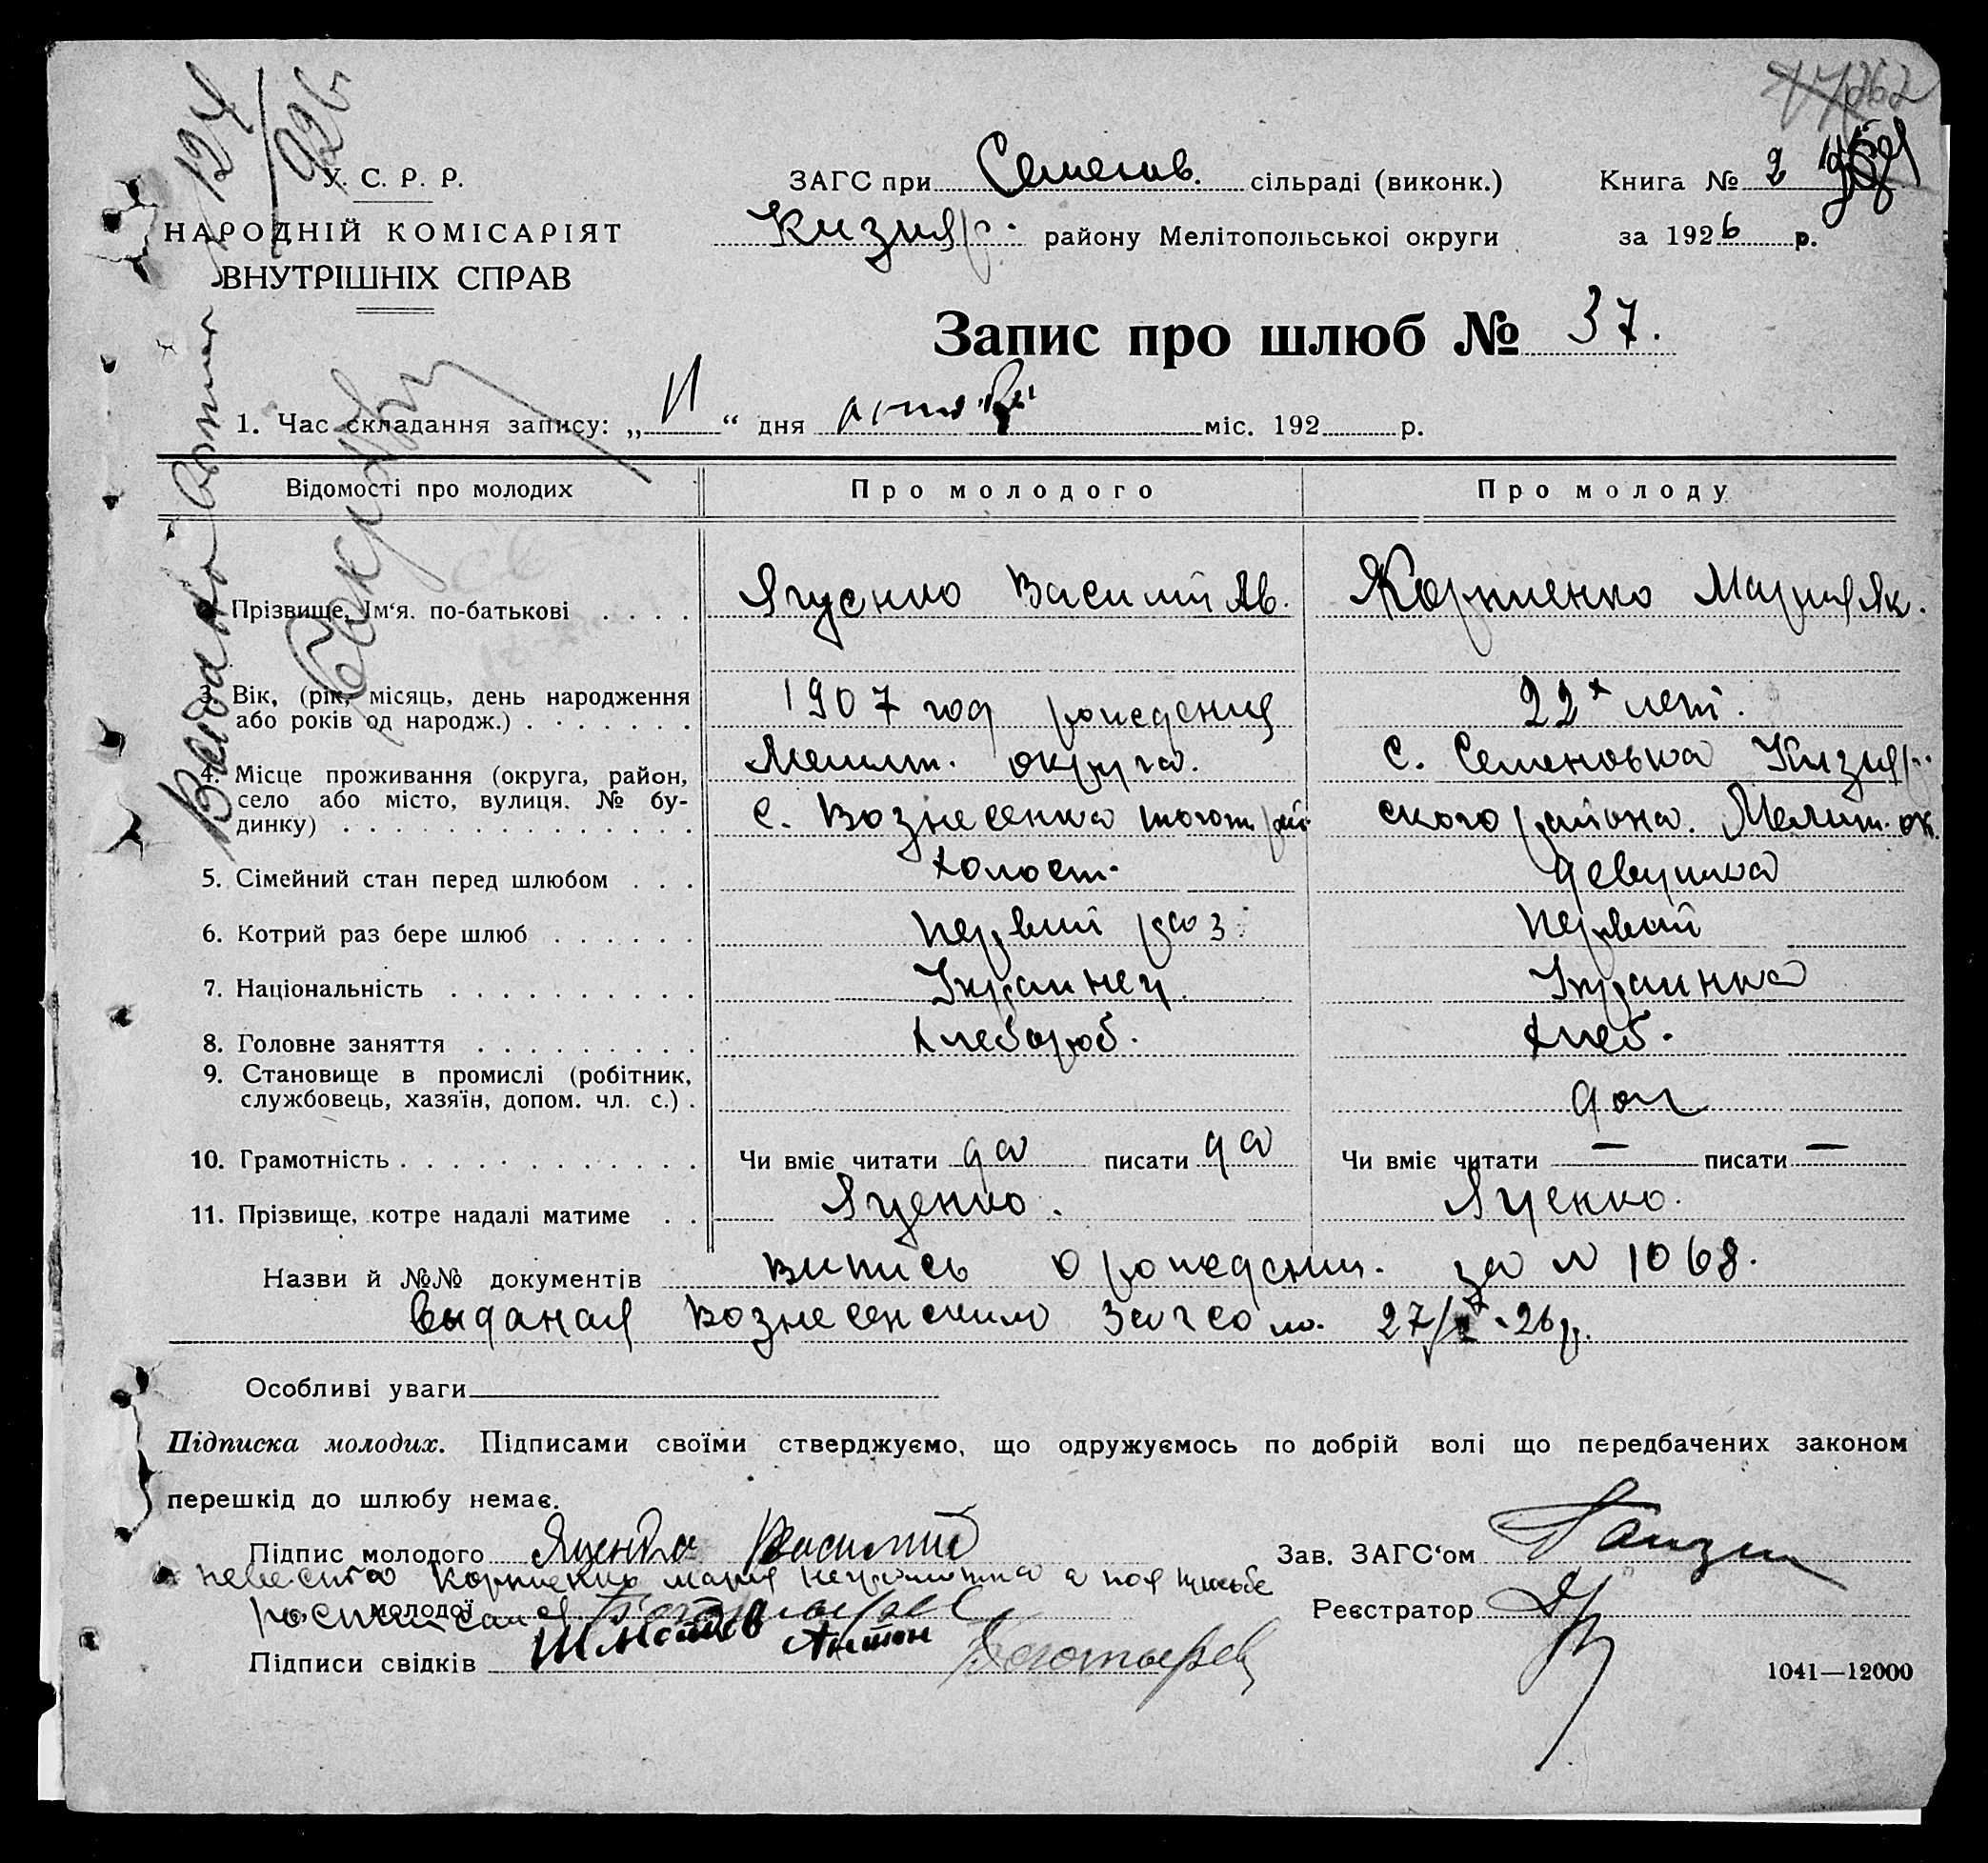 У. С. Р. Р.
НАРОДНІЙ КОМІСАРІЯТ
ВНУТРІШНІХ СПРАВ
ЗАГС при Семенив. сільраді (виконк.) Книга № 2
Кизияр. району Мелітопольської округи за 1926 р.
Запис про шлюб № 37.
1. Час складання запису: „11“ дня міс. 192 р.
Відомості про молодих Про молодого Про молоду
2. Прізвище, Ім'я. по-батькові Яценко Василий Ав. Корниенко Мария Як.
3. Вік, (рік, місяць, день народження 1907 год рождения 22х лет.
або років од народж.)
4. Місце проживання (округа, район, Мелит. округа. с. Семеновка Кизияр-
село або місто, вулиця. № бу- с. Вознесенка тогож рай ского района. Мелит. ок.
динку)
5. Сімейний стан перед шлюбом Холост. девушка
6. Котрий раз бере шлюб Первий раз. Первий
7. Національність Украинец. Украинка
8. Головне заняття Хлебороб. Хлеб.
9. Становище в промислі (робітник,
службовець, хазяїн, допом. чл. с.)
10. Грамотність Чи вміє читати да писати да Чи вміє читати — писати —
11. Прізвище, котре надалі матиме Яценко. Яценко.
Назви й №№ документів выпись о рождении. за № 1068.
Выданая Вознесенским Загсом. 27/X-26 р.
Особливі уваги
Підписка молодих. Підписами своїми стверджуємо, що одружуємось по добрій волі що передбачених законом
перешкід до шлюбу немає.
Підпис молодого Яценко Василий Зав. ЗАГС'ом
невеста Корниенко Мария неграмотна а по просьбе
молодої росписался Богатырев Реєстратор
Підписи свідків Антон Богатырев
1041—12000